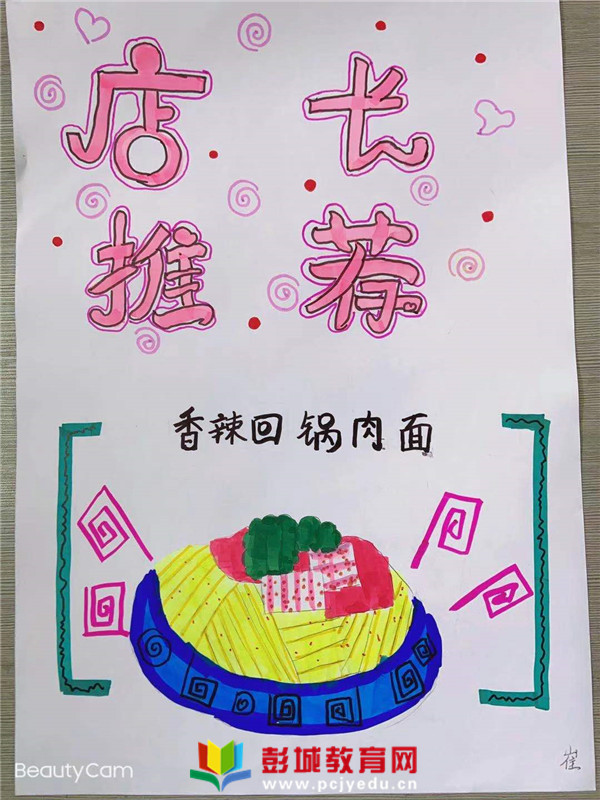 店长
推荐
香辣回锅肉面
崔
BeautyCam
彭城教育网
www.pcjyedu.cn